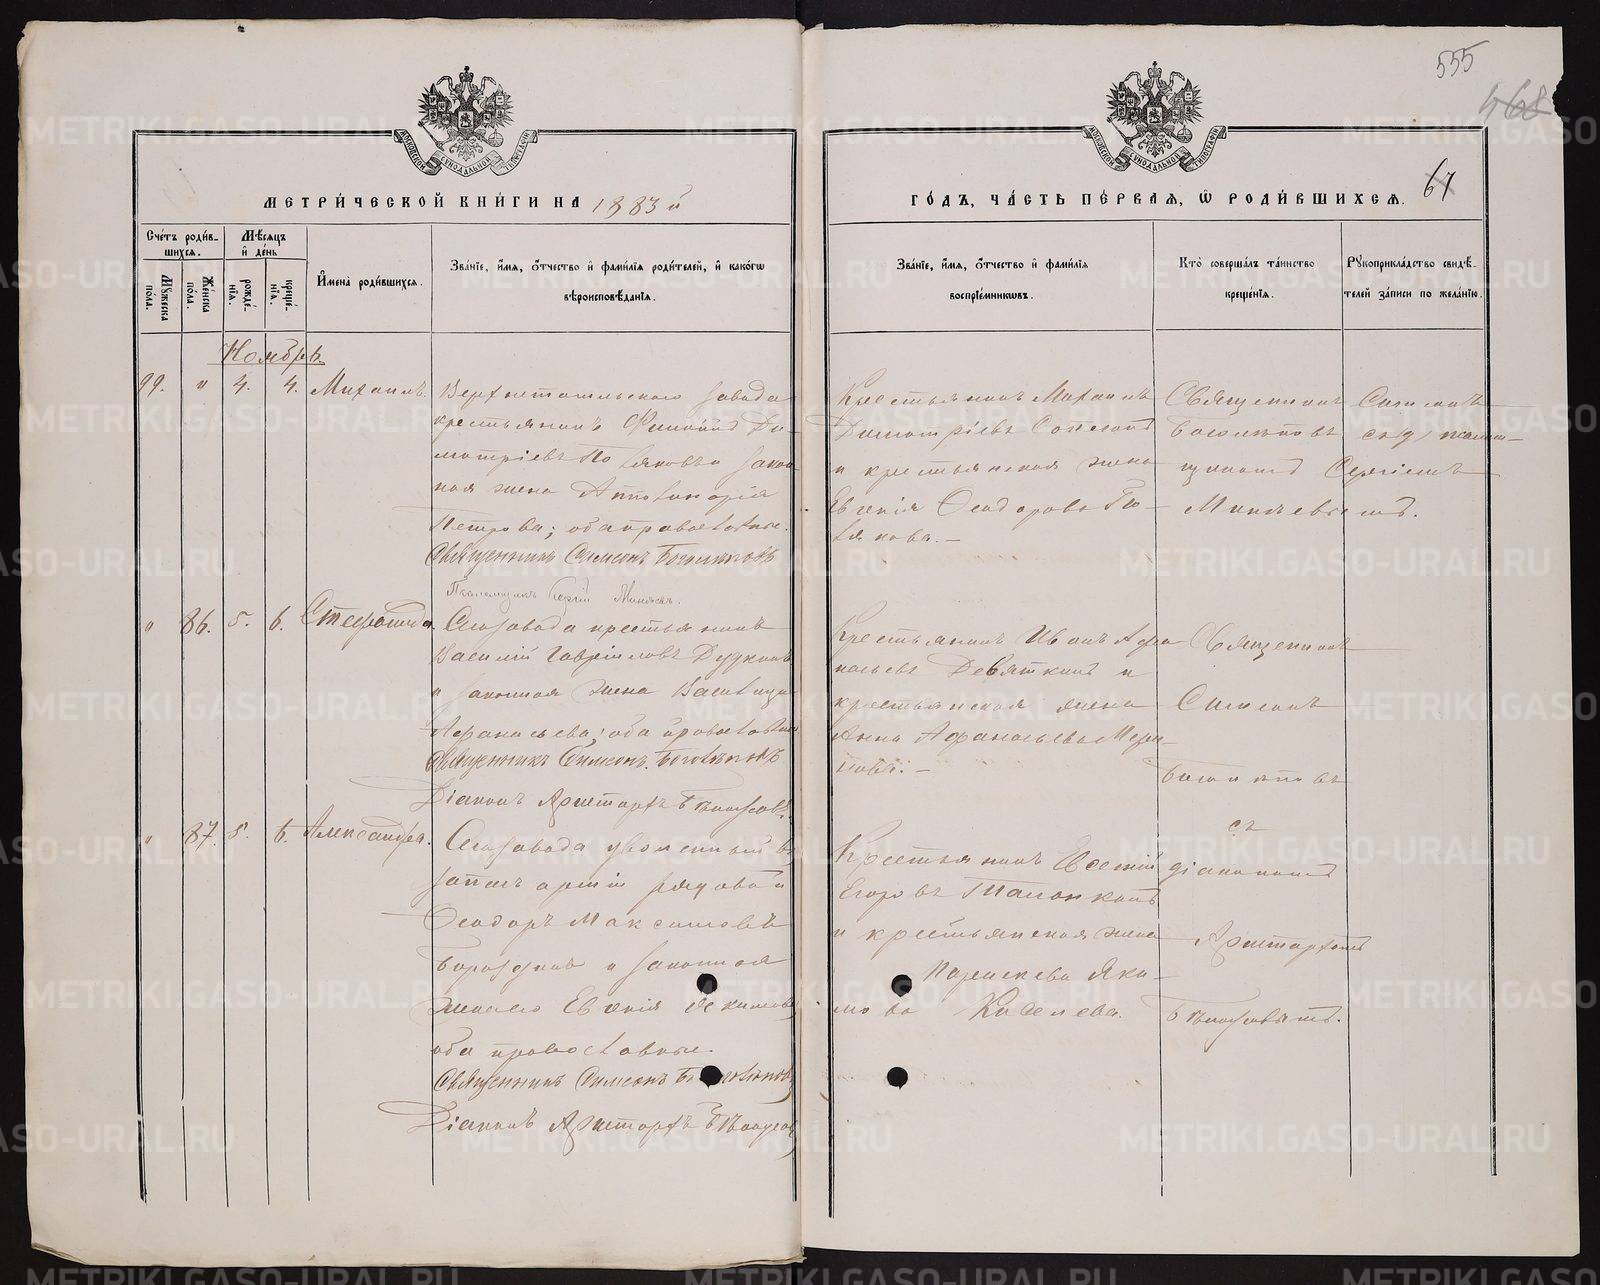 555
468
67
МОСКОВСКОЙ СѴНОДАЛЬНОЙ ТИПОГРАФІИ
МОСКОВСКОЙ СѴНОДАЛЬНОЙ ТИПОГРАФІИ
МЕТРИ́ЧЕСКОЙ КНИ́ГИ НА 1883 й
ГО́ДЪ, ЧА́СТЬ ПЕ́РВАЯ, Ѡ РОДИ́ВШИХСЯ.
Сче́тъ роди́в-
шихся.
Мѣ́сяцъ
и҆ де́нь
Му́жеска пола.
Же́нска пола.
рожде́-
нїя.
креще́-
нїя.
И҆мена̀ роди́вшихся.
Зва́нїе, и҆́мя, ѻ҆́тчество и҆ фами́лїя роди́телей, и҆ како́гѡ
вѣроисповѣ́данїя.
Зва́нїе, и҆́мя, ѻ҆́тчество и҆ фами́лїя
воспрїе́мникѡвъ.
Кто̀ соверша́лъ та́инство
креще́нїя.
Рꙋкоприкла́дство свидѣ́-
телей за́писи по жела́нїю.
Ноябрь.
99. " 4. 4. Михаилъ.
Верхнетагильскаго завода
крестьянинъ Ди-
митріевъ Поляковъ и закон
ная жена Апполинарія
Петрова; оба православные.
Священникъ Симеонъ Боголѣповъ
Псаломщикъ Сергій Миняевъ.
Крестьянинъ Михаилъ
Димитріевъ
и крестьянская жена
Евгенія Ѳеодорова По-
лякова.–
Священникъ Симеонъ
Боголѣповъ съ псалом-
щикомъ Сергіемъ
Миняевымъ.
" 86. 5. 6. Стефанида.
Сего завода крестьянинъ
Василій Гавріиловъ Дудкинъ
и законная жена Василиса
Афанасьева; оба православные
Священникъ Симеонъ Боголѣповъ
Діаконъ Аристархъ
Крестьянинъ Иванъ Афа
насьевъ Девяткинъ и
крестьянская жена
Анна Афанасьева
Священникъ
Симеонъ
Боголѣповъ
съ
діакономъ
Аристархомъ
" 87. 5. 6. Александра.
Сего завода уволенный въ
запасъ арміи рядовой
Ѳеодоръ Максимовъ
Бороздинъ и законная
жена его Евгенія Якимова
оба православные.
Священникъ Симеонъ Боголѣповъ
Діаконъ Аристархъ
Крестьянинъ Евсевій
Егоровъ Талонкинъ
и крестьянская жена
Параскева Яки-
мова Киселева.
METRIKI.GASO-URAL.RU